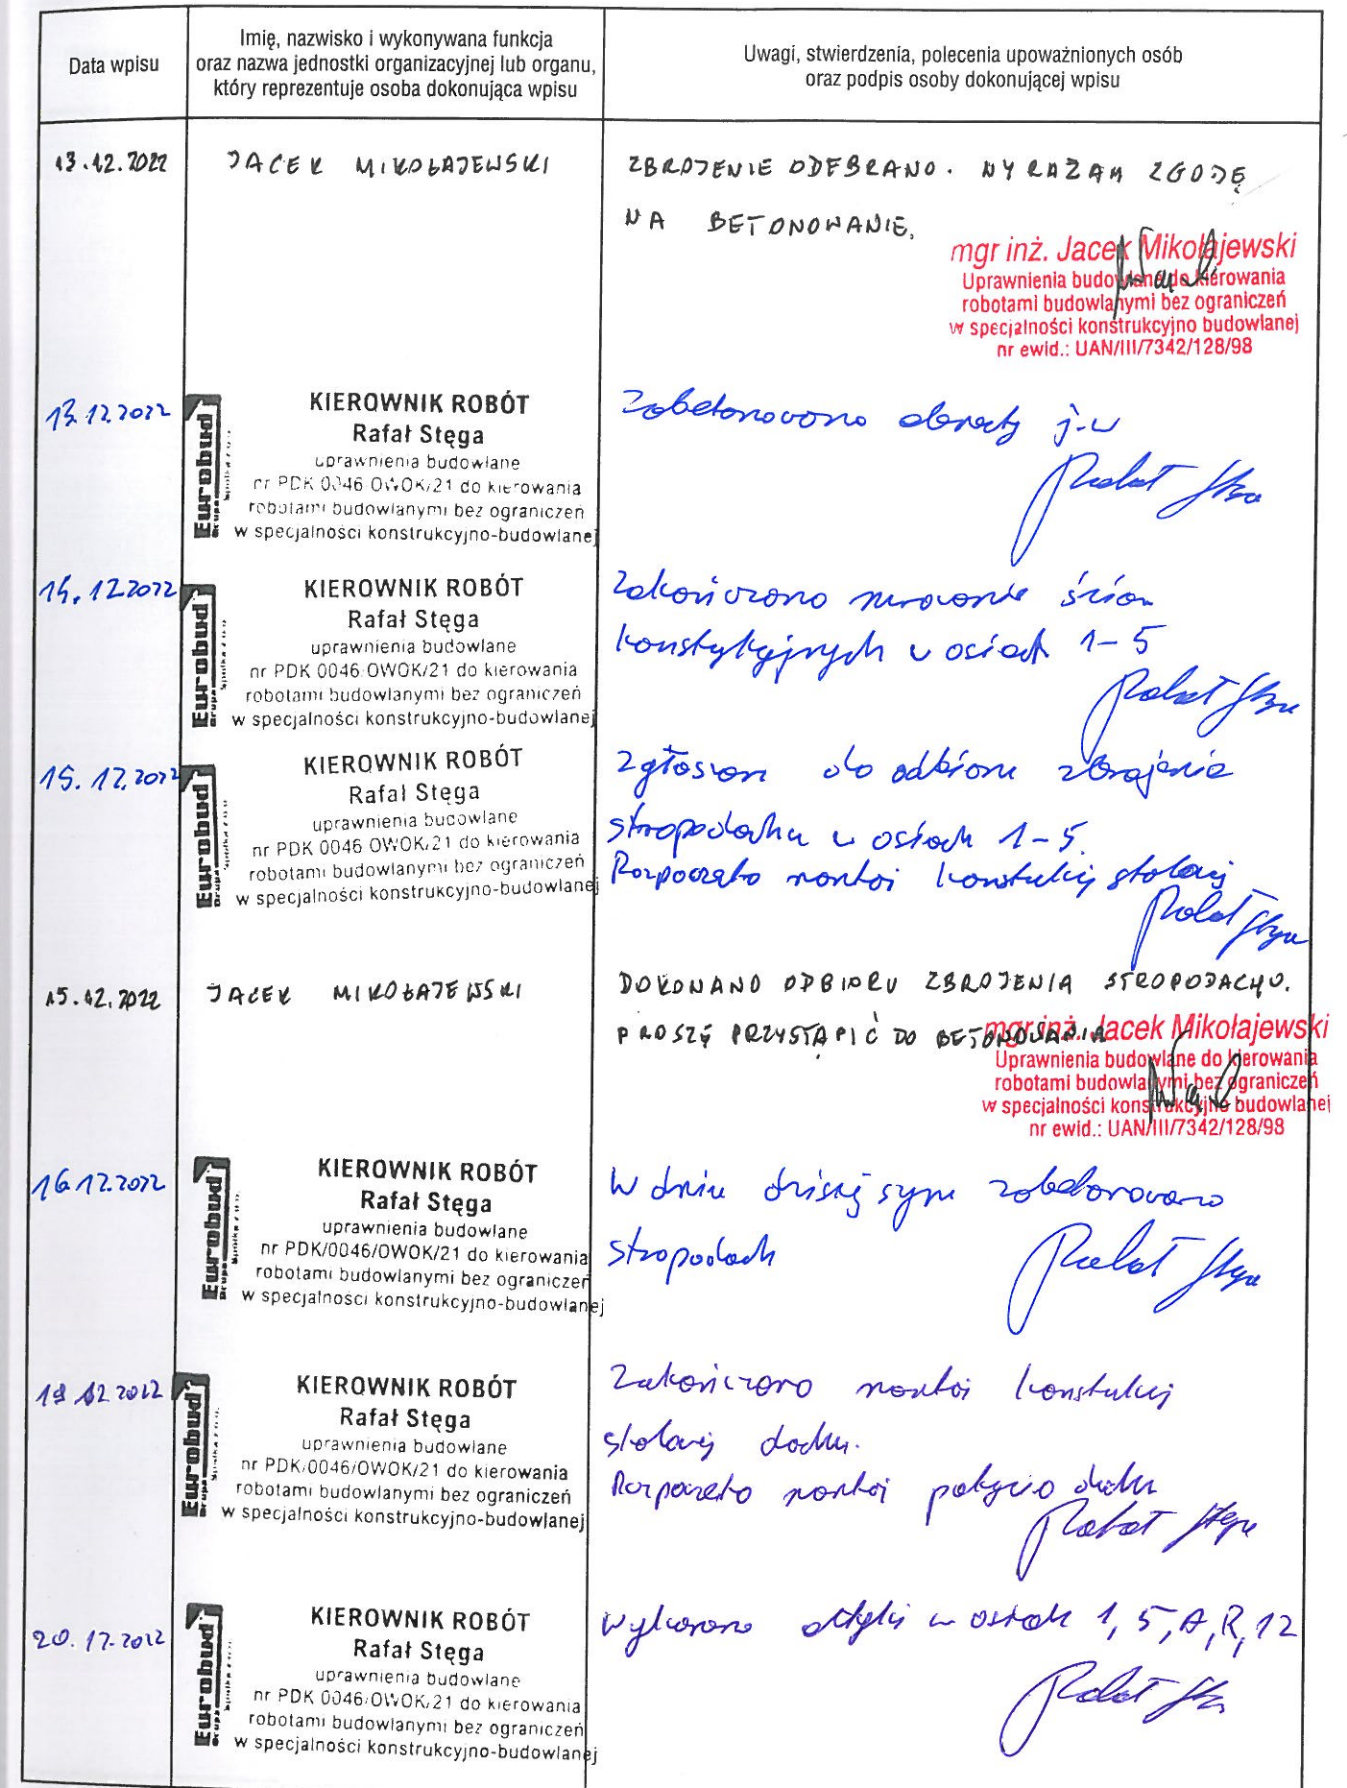 Data wpisu
Imię, nazwisko i wykonywana funkcja
oraz nazwa jednostki organizacyjnej lub organu,
który reprezentuje osoba dokonująca wpisu
Uwagi, stwierdzenia, polecenia upoważnionych osób
oraz podpis osoby dokonującej wpisu
13.12.2022
JACEK MIKOŁAJEWSKI
ZBROJENIE ODEBRANO. WYRAŻAM ZGODĘ
NA BETONOWANIE.
mgr inż. Jacek Mikołajewski
Uprawnienia budowlane do kierowania
robotami budowlanymi bez ograniczeń
w specjalności konstrukcyjno budowlanej
nr ewid.: UAN/III/7342/128/98
13.12.2022
Eurobud
Grupa Spółka z o.o.
KIEROWNIK ROBÓT
Rafał Stęga
uprawnienia budowlane
nr PDK 0046 OWOK/21 do kierowania
robotami budowlanymi bez ograniczeń
w specjalności konstrukcyjno-budowlanej
Zabetonowano elementy j.w
Rafał Stęga
14.12.2022
Eurobud
Grupa Spółka z o.o.
KIEROWNIK ROBÓT
Rafał Stęga
uprawnienia budowlane
nr PDK 0046 OWOK/21 do kierowania
robotami budowlanymi bez ograniczeń
w specjalności konstrukcyjno-budowlanej
Zakończono murowanie ścian
konstrukcyjnych w osiach 1-5
Rafał Stęga
15.12.2022
Eurobud
Grupa Spółka z o.o.
KIEROWNIK ROBÓT
Rafał Stęga
uprawnienia budowlane
nr PDK 0046 OWOK/21 do kierowania
robotami budowlanymi bez ograniczeń
w specjalności konstrukcyjno-budowlanej
Zgłoszon do odbioru zbrojenie
stropodachu w osiach 1-5.
Rozpoczęto montaż konstrukcji stalowej
Rafał Stęga
15.12.2022
JACEK MIKOŁAJEWSKI
DOKONANO ODBIORU ZBROJENIA STROPODACHU.
PROSZĘ PRZYSTĄPIĆ DO BETONOWANIA
mgr inż. Jacek Mikołajewski
Uprawnienia budowlane do kierowania
robotami budowlanymi bez ograniczeń
w specjalności konstrukcyjno budowlanej
nr ewid.: UAN/III/7342/128/98
16.12.2022
Eurobud
Grupa Spółka z o.o.
KIEROWNIK ROBÓT
Rafał Stęga
uprawnienia budowlane
nr PDK/0046/OWOK/21 do kierowania
robotami budowlanymi bez ograniczeń
w specjalności konstrukcyjno-budowlanej
W dniu dzisiejszym zabetonowano
stropodach
Rafał Stęga
19.12.2022
Eurobud
Grupa Spółka z o.o.
KIEROWNIK ROBÓT
Rafał Stęga
uprawnienia budowlane
nr PDK/0046/OWOK/21 do kierowania
robotami budowlanymi bez ograniczeń
w specjalności konstrukcyjno-budowlanej
Zakończono montaż konstrukcji
stalowej dachu.
Rozpoczęto montaż pokrycia dachu
Rafał Stęga
20.12.2022
Eurobud
Grupa Spółka z o.o.
KIEROWNIK ROBÓT
Rafał Stęga
uprawnienia budowlane
nr PDK 0046/OWOK/21 do kierowania
robotami budowlanymi bez ograniczeń
w specjalności konstrukcyjno-budowlanej
Wykonano attyki w osiach 1, 5, A, R, 12
Rafał Stęga